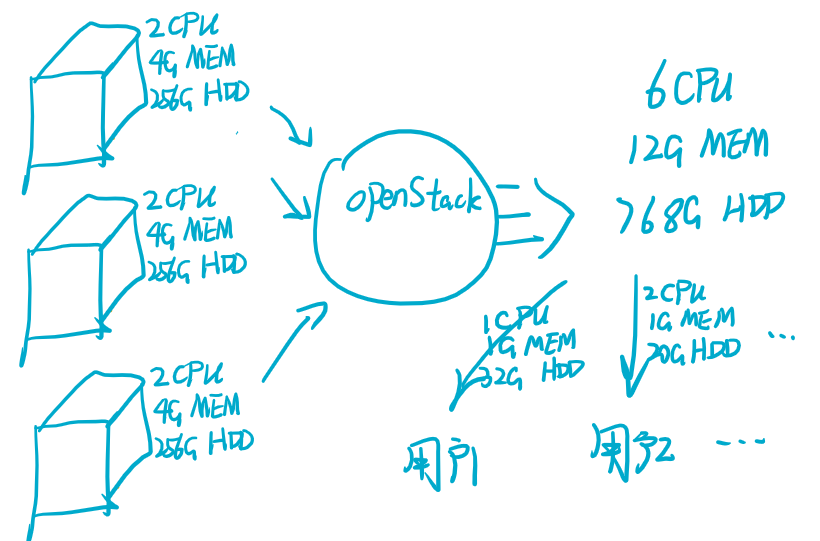 2 CPU
4G MEM
256G HDD
2 CPU
4G MEM
256G HDD
2 CPU
4G MEM
256G HDD
openStack
6 CPU
12G MEM
768G HDD
1 CPU
1G MEM
32G HDD
2 CPU
1G MEM
20G HDD ...
用户1
用户2 ...